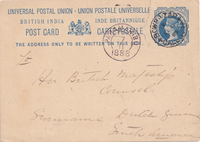 UNIVERSAL POSTAL UNION - UNION POSTALE UNIVERSELLE
BRITISH INDIA INDE BRITANNIQUE
POST CARD CARTE POSTALE
THE ADDRESS ONLY TO BE WRITTEN ON THIS SIDE
To
Her British Majesty's
Consul
Dutch
South America